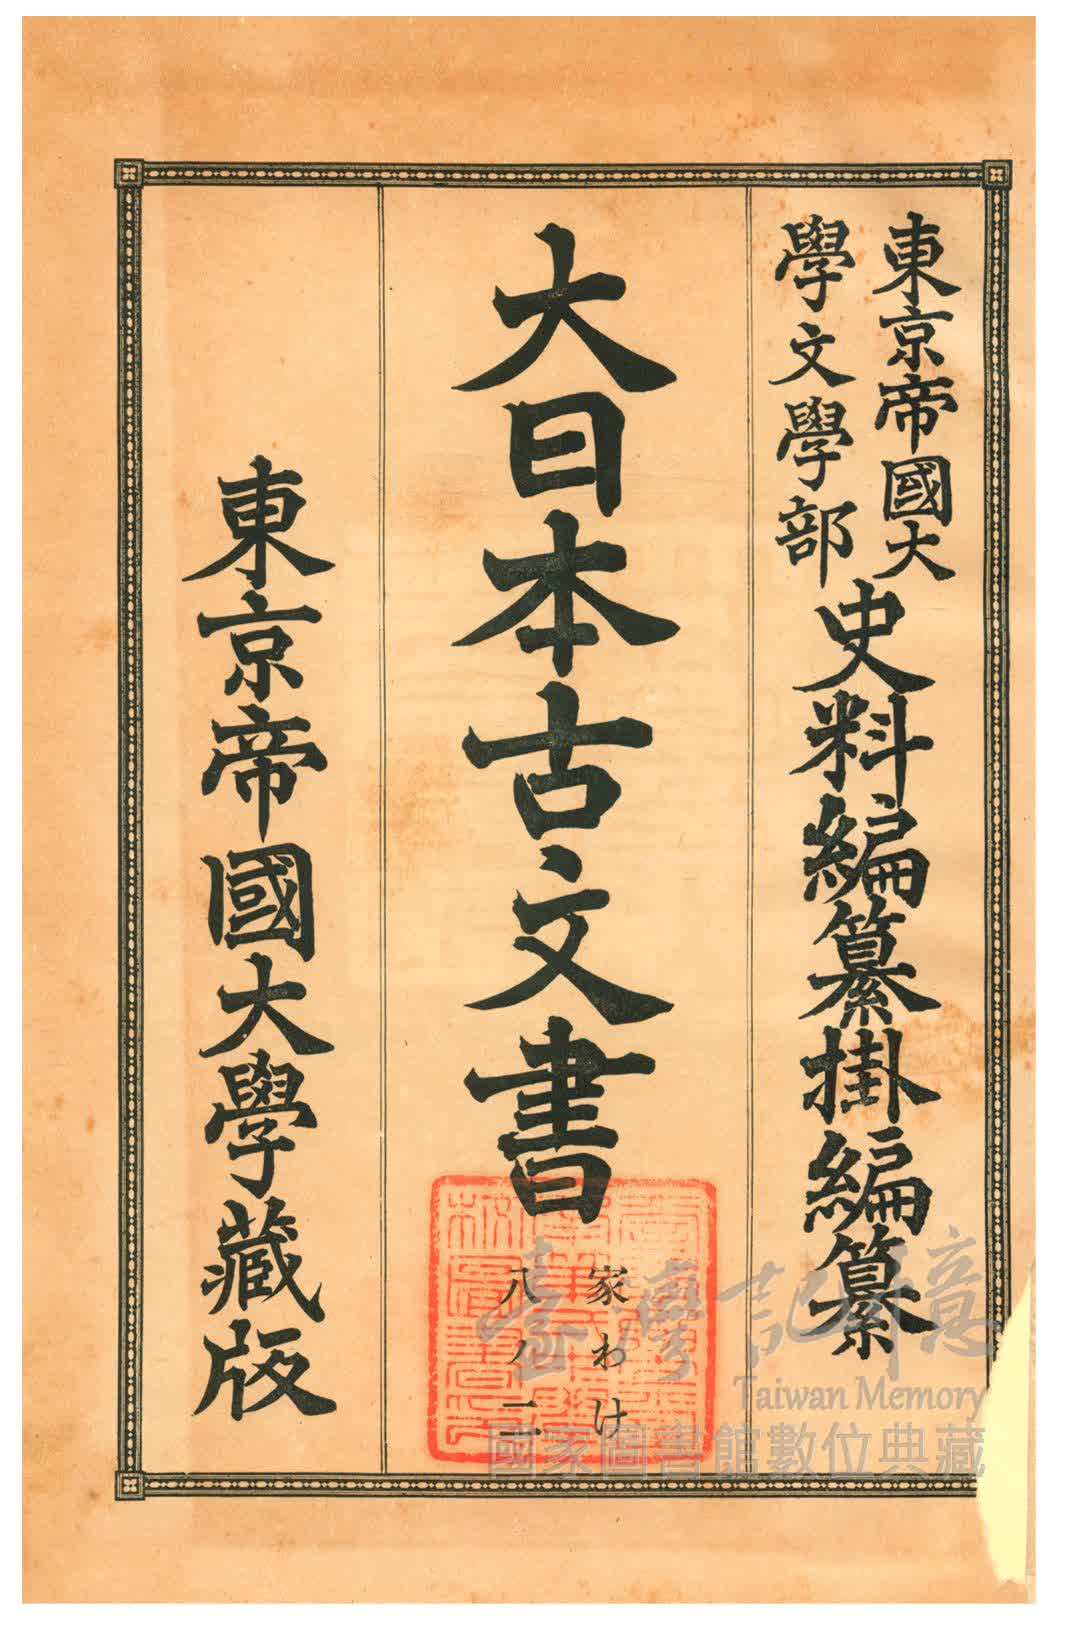 東京帝國大
學文學部
史料編纂掛編纂
大日本古文書
家わけ
八ノ二
東京帝國大學藏版
臺灣記憶
Taiwan Memory
國家圖書館數位典藏